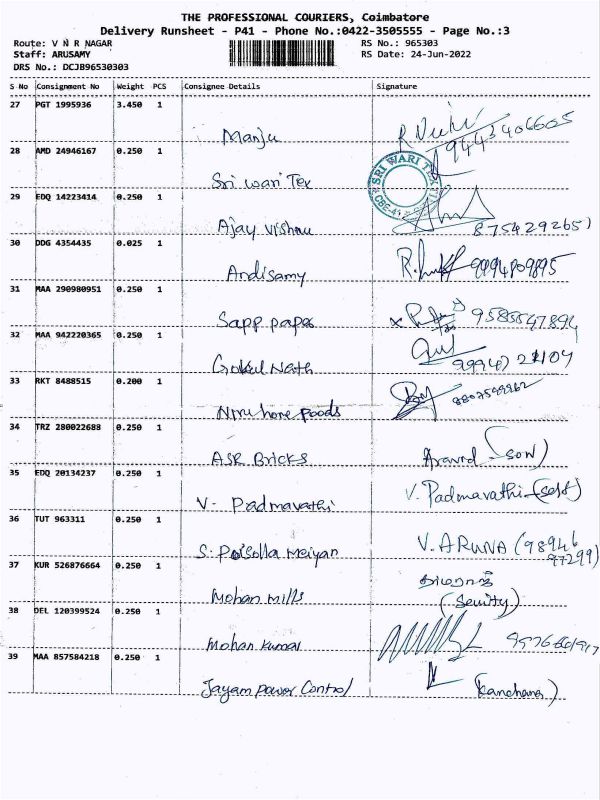 THE PROFESSIONAL COURIERS, Coimbatore
Delivery Runsheet - P41 - Phone No.:0422-3505555 - Page No.:3
Route: V N R NAGAR RS No.: 965303
Staff: ARUSAMY RS Date: 24-Jun-2022
DRS No.: DCJB96530303
S No Consignment No Weight PCS Consignee Details Signature
27 PGT 1995936 3.450 1 Manju 9443406605
28 AMD 24946167 0.250 1 Sri wari Tex SRI WARI TEX
29 EDQ 14223414 0.250 1 Ajay vishnu 8754292651
30 DDG 4354435 0.025 1 Andisamy 9994809895
31 MAA 290980951 0.250 1 Sapp paper 9585547894
32 MAA 942220365 0.250 1 Gokul Nath
33 RKT 8488515 0.200 1
34 TRZ 280022688 0.250 1 ASR Bricks Aravind (son)
35 EDQ 20134237 0.250 1 V. Padmavathi V. Padmavathi (self)
36 TUT 963311 0.250 1 V. ARUNA (98946
97299)
37 KUR 526876664 0.250 1 Mohan Mills
38 DEL 120399524 0.250 1 Mohan Kumar
39 MAA 857584218 0.250 1 Jayam power Control (Kanchana)